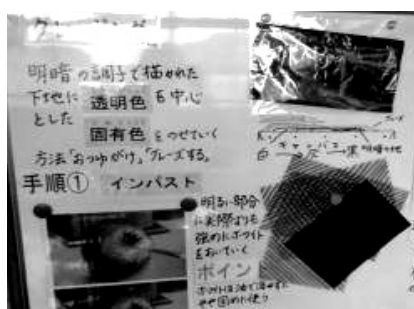 明暗の調子で描かれた
下地に 透明色 を中心
とした
固有色 をのせていく
方法「おつゆがけ」「グレーズする。
手順① インパスト
明るい部分
に実際よりも
強めにホワイト
をおいていく
ポイン
やや固めに使う
グレーズ
白 → 灰 → 黒 明暗下地